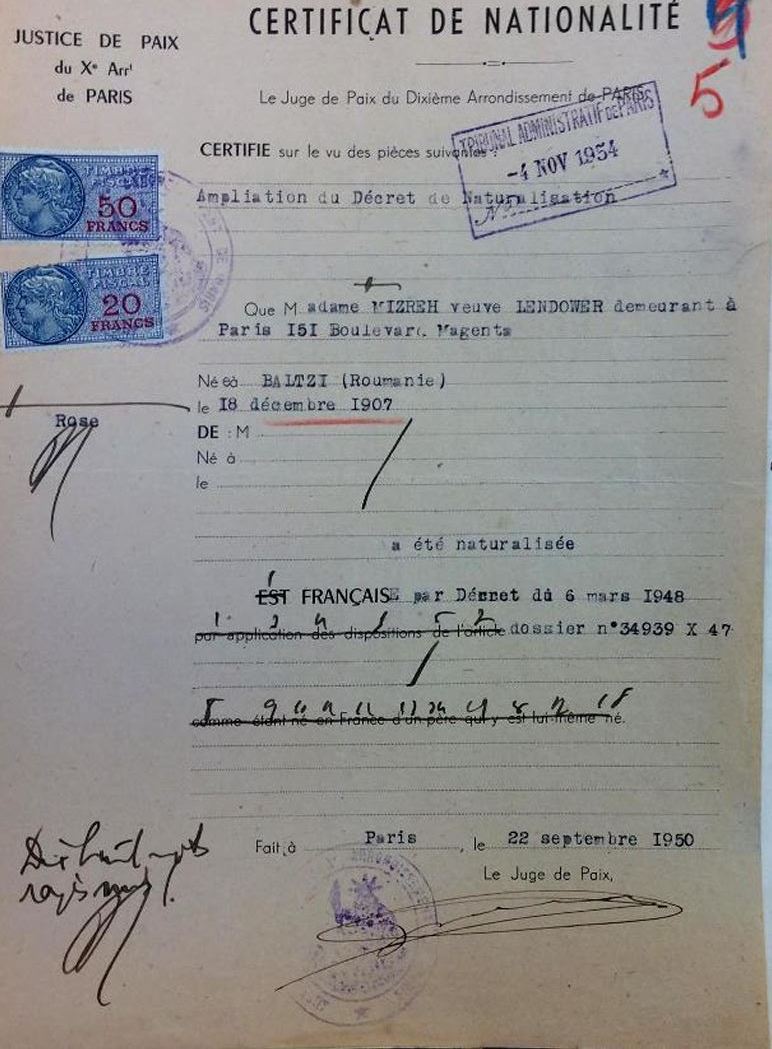 CERTIFICAT DE NATIONALITÉ
JUSTICE DE PAIX
du Xᵉ Arrᵗ
de PARIS
5
Le Juge de Paix du Dixième Arrondissement de PARIS
CERTIFIE sur le vu des pièces suivantes :
TRIBUNAL ADMINISTRATIF de PARIS
-4 NOV 1954
Ampliation du Décret de Naturalisation
TIMBRE
FISCAL
50
FRANCS
TIMBRE
FISCAL
20
FRANCS
Que M adame MIZREH veuve LENDOWER demeurant à
Paris I5I Boulevard Magenta
Né eà BALTZI (Roumanie)
le I8 décembre I907
Rose
DE : M
Né à
le
a été naturalisée
EST FRANÇAISE par Décret du 6 mars I948
par application des dispositions de l'article dossier n°34939 X 47
comme étant né en France d'un père qui y est lui-même né.
Fait à Paris, le 22 septembre I950
Le Juge de Paix,